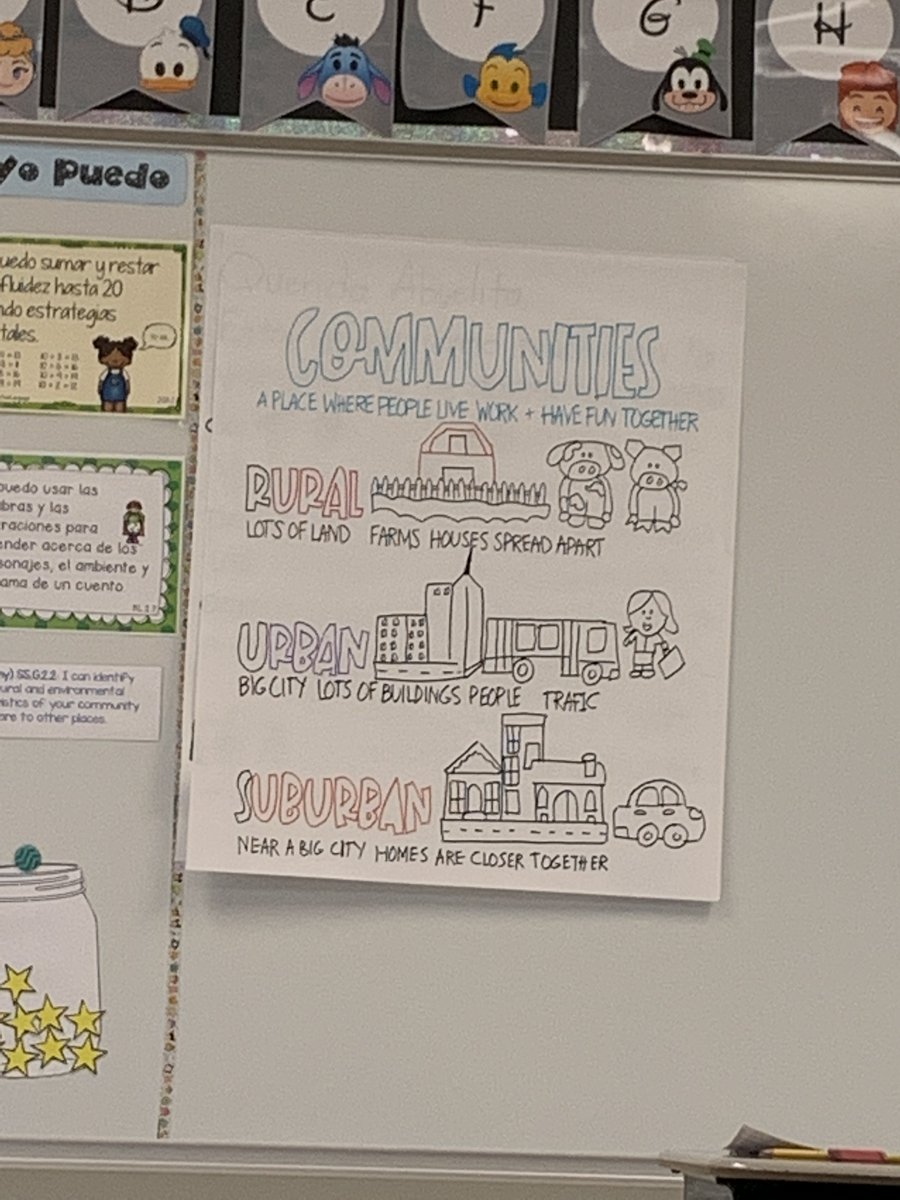 C
F
G
H
Yo Puedo
uedo sumar y restar
fluidez hasta 20
ndo estrategias
tales.
uedo usar las
bras y las
raciones para
ender acerca de los
sonajes, el ambiente y
ama de un cuento
RL.1.7
SS.G.2.2. I can identify
ural and environmental
istics of your community
are to other places.
COMMUNITIES
A PLACE WHERE PEOPLE LIVE WORK + HAVE FUN TOGETHER
RURAL
LOTS OF LAND FARMS HOUSES SPREAD APART
URBAN
BIG CITY LOTS OF BUILDINGS PEOPLE TRAFIC
SUBURBAN
NEAR A BIG CITY HOMES ARE CLOSER TOGETHER